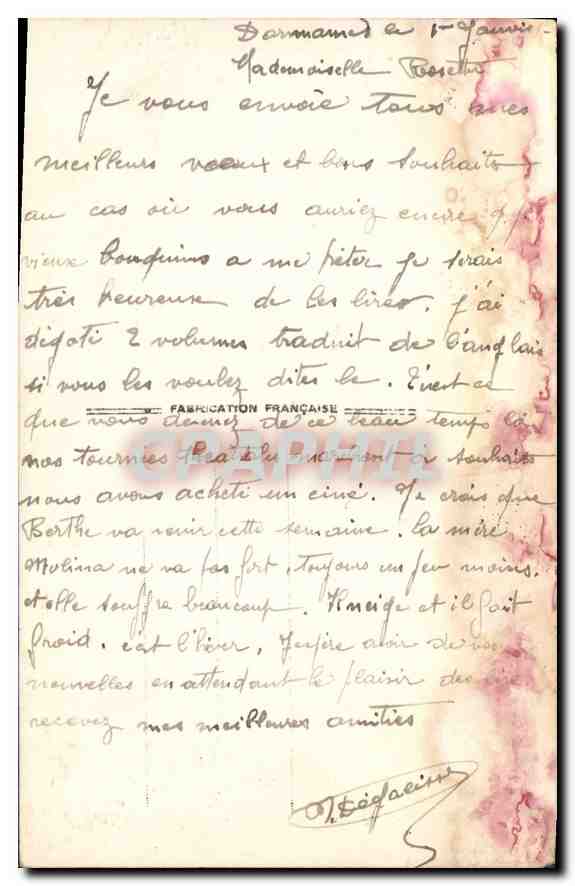 Dormans le 1er Janvier
Mademoiselle Rosette
Je vous envoie tous mes
meilleurs voeux et bons souhaits
au cas où vous auriez encore
vieux bouquins a me prêter je serais
très heureuse de les lires. j'ai
dégoti 2 volumes traduit de l'anglais
si vous les voulez dites le. Qu'est ce
FABRICATION FRANÇAISE
que vous devenez de ce beau temps là
nos tournées théatrales marchent a souhaits
nous avons acheté un ciné. Je crois que
Berthe va venir cette semaine. la mère
Molina ne va pas fort, toujours un peu moins.
et elle souffre beaucoup. Il neige et il fait
froid. c'est l'hiver. J'espère avoir de vos
nouvelles en attendant le plaisir des lire
recevez mes meilleures amitiés
CPAPHIL